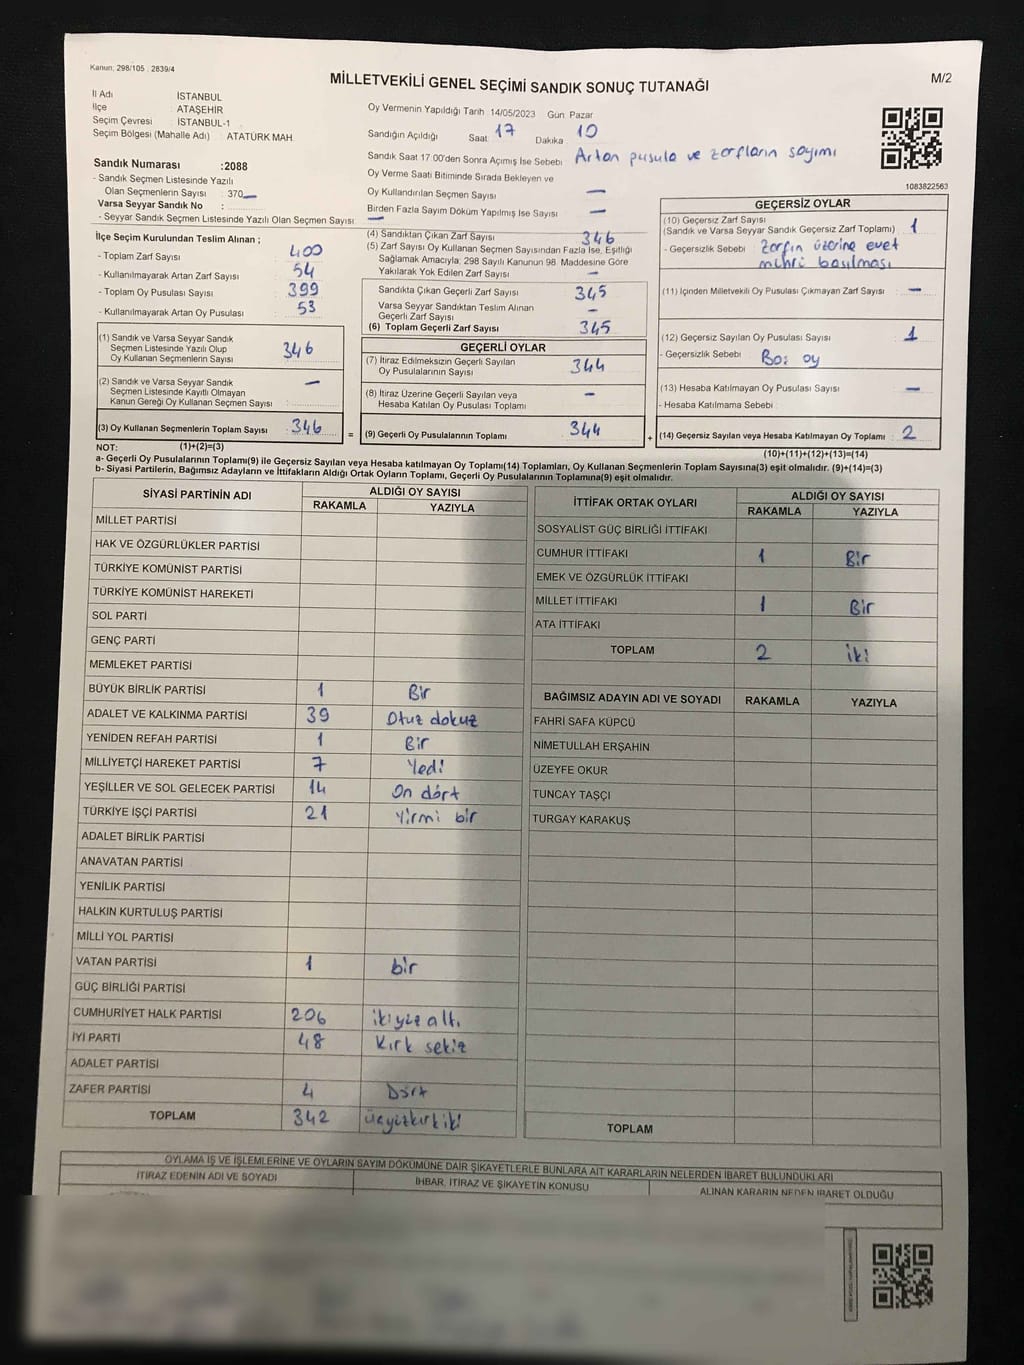 Kanun: 298/105 . 2839/4
MİLLETVEKİLİ GENEL SEÇİMİ SANDIK SONUÇ TUTANAĞI
M/2
İl Adı İSTANBUL
İlçe ATAŞEHİR
Seçim Çevresi : İSTANBUL-1
Seçim Bölgesi (Mahalle Adı) : ATATÜRK MAH.
Sandık Numarası :2088
- Sandık Seçmen Listesinde Yazılı
Olan Seçmenlerin Sayısı : 370
Varsa Seyyar Sandık No :
- Seyyar Sandık Seçmen Listesinde Yazılı Olan Seçmen Sayısı : —
Oy Vermenin Yapıldığı Tarih 14/05/2023 Gün Pazar
Sandığın Açıldığı Saat 17 Dakika 10
Sandık Saat 17:00'den Sonra Açımış İse Sebebi Artan pusula ve zarfların sayımı
Oy Verme Saati Bitiminde Sırada Bekleyen ve
Oy Kullandırılan Seçmen Sayısı —
Birden Fazla Sayım Döküm Yapılmış İse Sayısı —
1083822563
İlçe Seçim Kurulundan Teslim Alınan ;
- Toplam Zarf Sayısı 400
- Kullanılmayarak Artan Zarf Sayısı 54
- Toplam Oy Pusulası Sayısı 399
- Kullanılmayarak Artan Oy Pusulası 53
(1) Sandık ve Varsa Seyyar Sandık
Seçmen Listesinde Yazılı Olup
Oy Kullanan Seçmenlerin Sayısı 346
(2) Sandık ve Varsa Seyyar Sandık
Seçmen Listesinde Kayıtlı Olmayan
Kanun Gereği Oy Kullanan Seçmen Sayısı : —
(3) Oy Kullanan Seçmenlerin Toplam Sayısı 346
(4) Sandıktan Çıkan Zarf Sayısı 346
(5) Zarf Sayısı Oy Kullanan Seçmen Sayısından Fazla İse, Eşitliği
Sağlamak Amacıyla; 298 Sayılı Kanunun 98. Maddesine Göre
Yakılarak Yok Edilen Zarf Sayısı —
Sandıkta Çıkan Geçerli Zarf Sayısı 345
Varsa Seyyar Sandıktan Teslim Alınan
Geçerli Zarf Sayısı —
(6) Toplam Geçerli Zarf Sayısı 345
GEÇERLİ OYLAR
(7) İtiraz Edilmeksizin Geçerli Sayılan
Oy Pusulalarının Sayısı 344
(8) İtiraz Üzerine Geçerli Sayılan veya
Hesaba Katılan Oy Pusulası Toplamı —
= (9) Geçerli Oy Pusulalarının Toplamı 344
GEÇERSİZ OYLAR
(10) Geçersiz Zarf Sayısı
(Sandık ve Varsa Seyyar Sandık Geçersiz Zarf Toplamı) 1
- Geçersizlik Sebebi Zarfın üzerine evet
mührü basılması
(11) İçinden Milletvekili Oy Pusulası Çıkmayan Zarf Sayısı —
(12) Geçersiz Sayılan Oy Pusulası Sayısı 1
- Geçersizlik Sebebi Boş oy
(13) Hesaba Katılmayan Oy Pusulası Sayısı —
- Hesaba Katılmama Sebebi
+ (14) Geçersiz Sayılan veya Hesaba Katılmayan Oy Toplamı 2
NOT: (1)+(2)=(3)
(10)+(11)+(12)+(13)=(14)
a- Geçerli Oy Pusulalarının Toplamı(9) ile Geçersiz Sayılan veya Hesaba katılmayan Oy Toplamı(14) Toplamları, Oy Kullanan Seçmenlerin Toplam Sayısına(3) eşit olmalıdır. (9)+(14)=(3)
b- Siyasi Partilerin, Bağımsız Adayların ve İttifakların Aldığı Ortak Oyların Toplamı, Geçerli Oy Pusulalarının Toplamına(9) eşit olmalıdır.
SİYASİ PARTİNİN ADI ALDIĞI OY SAYISI
RAKAMLA YAZIYLA
MİLLET PARTİSİ
HAK VE ÖZGÜRLÜKLER PARTİSİ
TÜRKİYE KOMÜNİST PARTİSİ
TÜRKİYE KOMÜNİST HAREKETİ
SOL PARTİ
GENÇ PARTİ
MEMLEKET PARTİSİ
BÜYÜK BİRLİK PARTİSİ 1 Bir
ADALET VE KALKINMA PARTİSİ 39 Otuz dokuz
YENİDEN REFAH PARTİSİ 1 Bir
MİLLİYETÇİ HAREKET PARTİSİ 7 Yedi
YEŞİLLER VE SOL GELECEK PARTİSİ 14 On dört
TÜRKİYE İŞÇİ PARTİSİ 21 Yirmi bir
ADALET BİRLİK PARTİSİ
ANAVATAN PARTİSİ
YENİLİK PARTİSİ
HALKIN KURTULUŞ PARTİSİ
MİLLİ YOL PARTİSİ
VATAN PARTİSİ 1 bir
GÜÇ BİRLİĞİ PARTİSİ
CUMHURİYET HALK PARTİSİ 206 ikiyüz altı
İYİ PARTİ 48 Kırk sekiz
ADALET PARTİSİ
ZAFER PARTİSİ 4 Dört
TOPLAM 342 üçyüzkırkiki
İTTİFAK ORTAK OYLARI ALDIĞI OY SAYISI
RAKAMLA YAZIYLA
SOSYALİST GÜÇ BİRLİĞİ İTTİFAKI
CUMHUR İTTİFAKI 1 Bir
EMEK VE ÖZGÜRLÜK İTTİFAKI
MİLLET İTTİFAKI 1 Bir
ATA İTTİFAKI
TOPLAM 2 iki
BAĞIMSIZ ADAYIN ADI VE SOYADI RAKAMLA YAZIYLA
FAHRİ SAFA KÜPCÜ
NİMETULLAH ERŞAHİN
ÜZEYFE OKUR
TUNCAY TAŞÇI
TURGAY KARAKUŞ
TOPLAM
OYLAMA İŞ VE İŞLEMLERİNE VE OYLARIN SAYIM DÖKÜMÜNE DAİR ŞİKAYETLERLE BUNLARA AİT KARARLARIN NELERDEN İBARET BULUNDUKLARI
İTİRAZ EDENİN ADI VE SOYADI İHBAR, İTİRAZ VE ŞİKAYETİN KONUSU ALINAN KARARIN NEDEN İBARET OLDUĞU